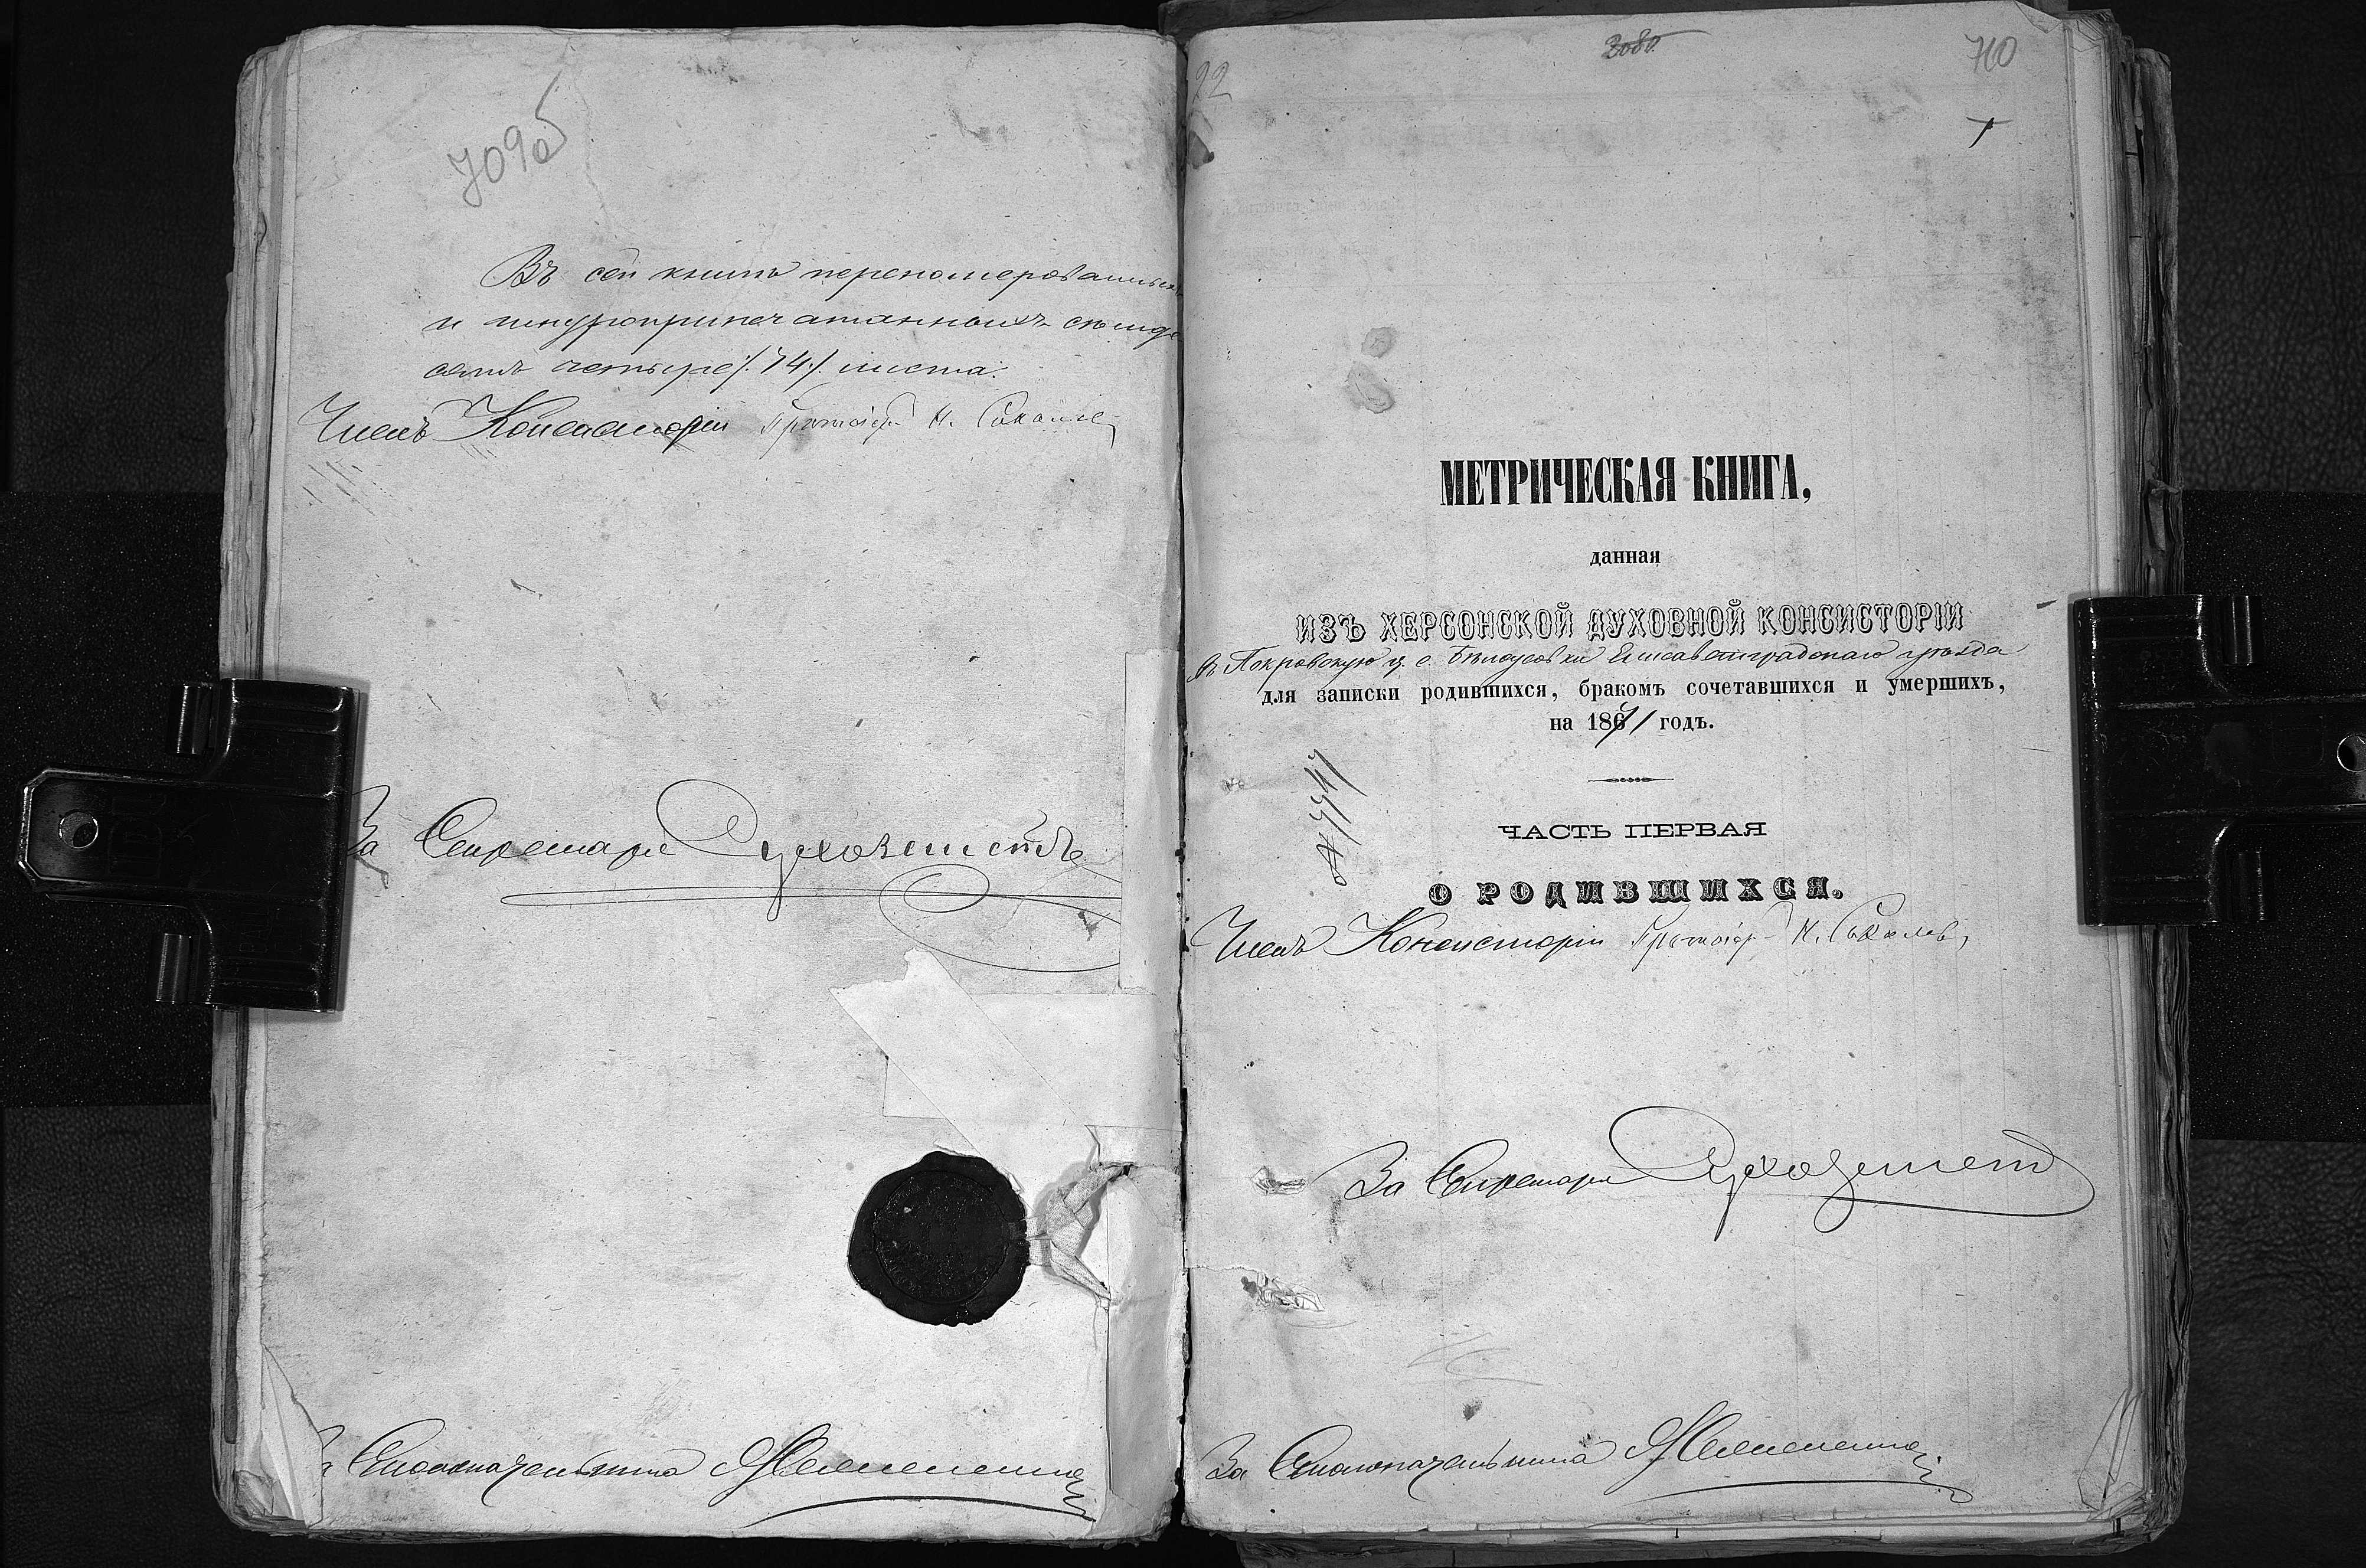 709об
Въ сей книгѣ переномерованныхъ
и шнуроприпечатанныхъ семьде
сятъ четыре /.74./ листа.
Членъ Консисторіи Протоіер. Н. Соколов
За Секретаря
За Столоначальника
22
3080
710
1
МЕТРИЧЕСКАЯ КНИГА,
данная
ИЗЪ ХЕРСОНСКОЙ ДУХОВНОЙ КОНСИСТОРІИ
въ Покровскую ц. с. Бѣлоусовки Елисаветградскаго уѣзда
для записки родившихся, бракомъ сочетавшихся и умершихъ,
на 1871 годъ.
ЧАСТЬ ПЕРВАЯ
О РОДИВШИХСЯ.
Членъ Консисторіи Протоіер. Н. Соколов
За Секретаря
За Столоначальника